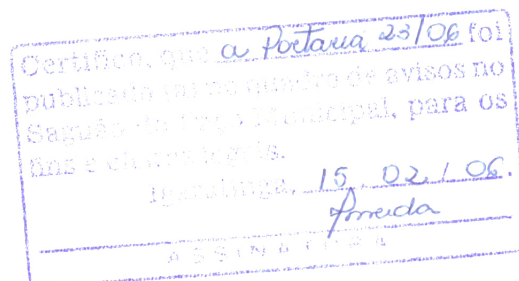 Certifico, que a Portaria 23/06 foi
publicado no quadro de avisos no
Saguão do Municipal, para os
fins e efeitos legais.
15, 02 / 06.
Almeida
ASSINATURA